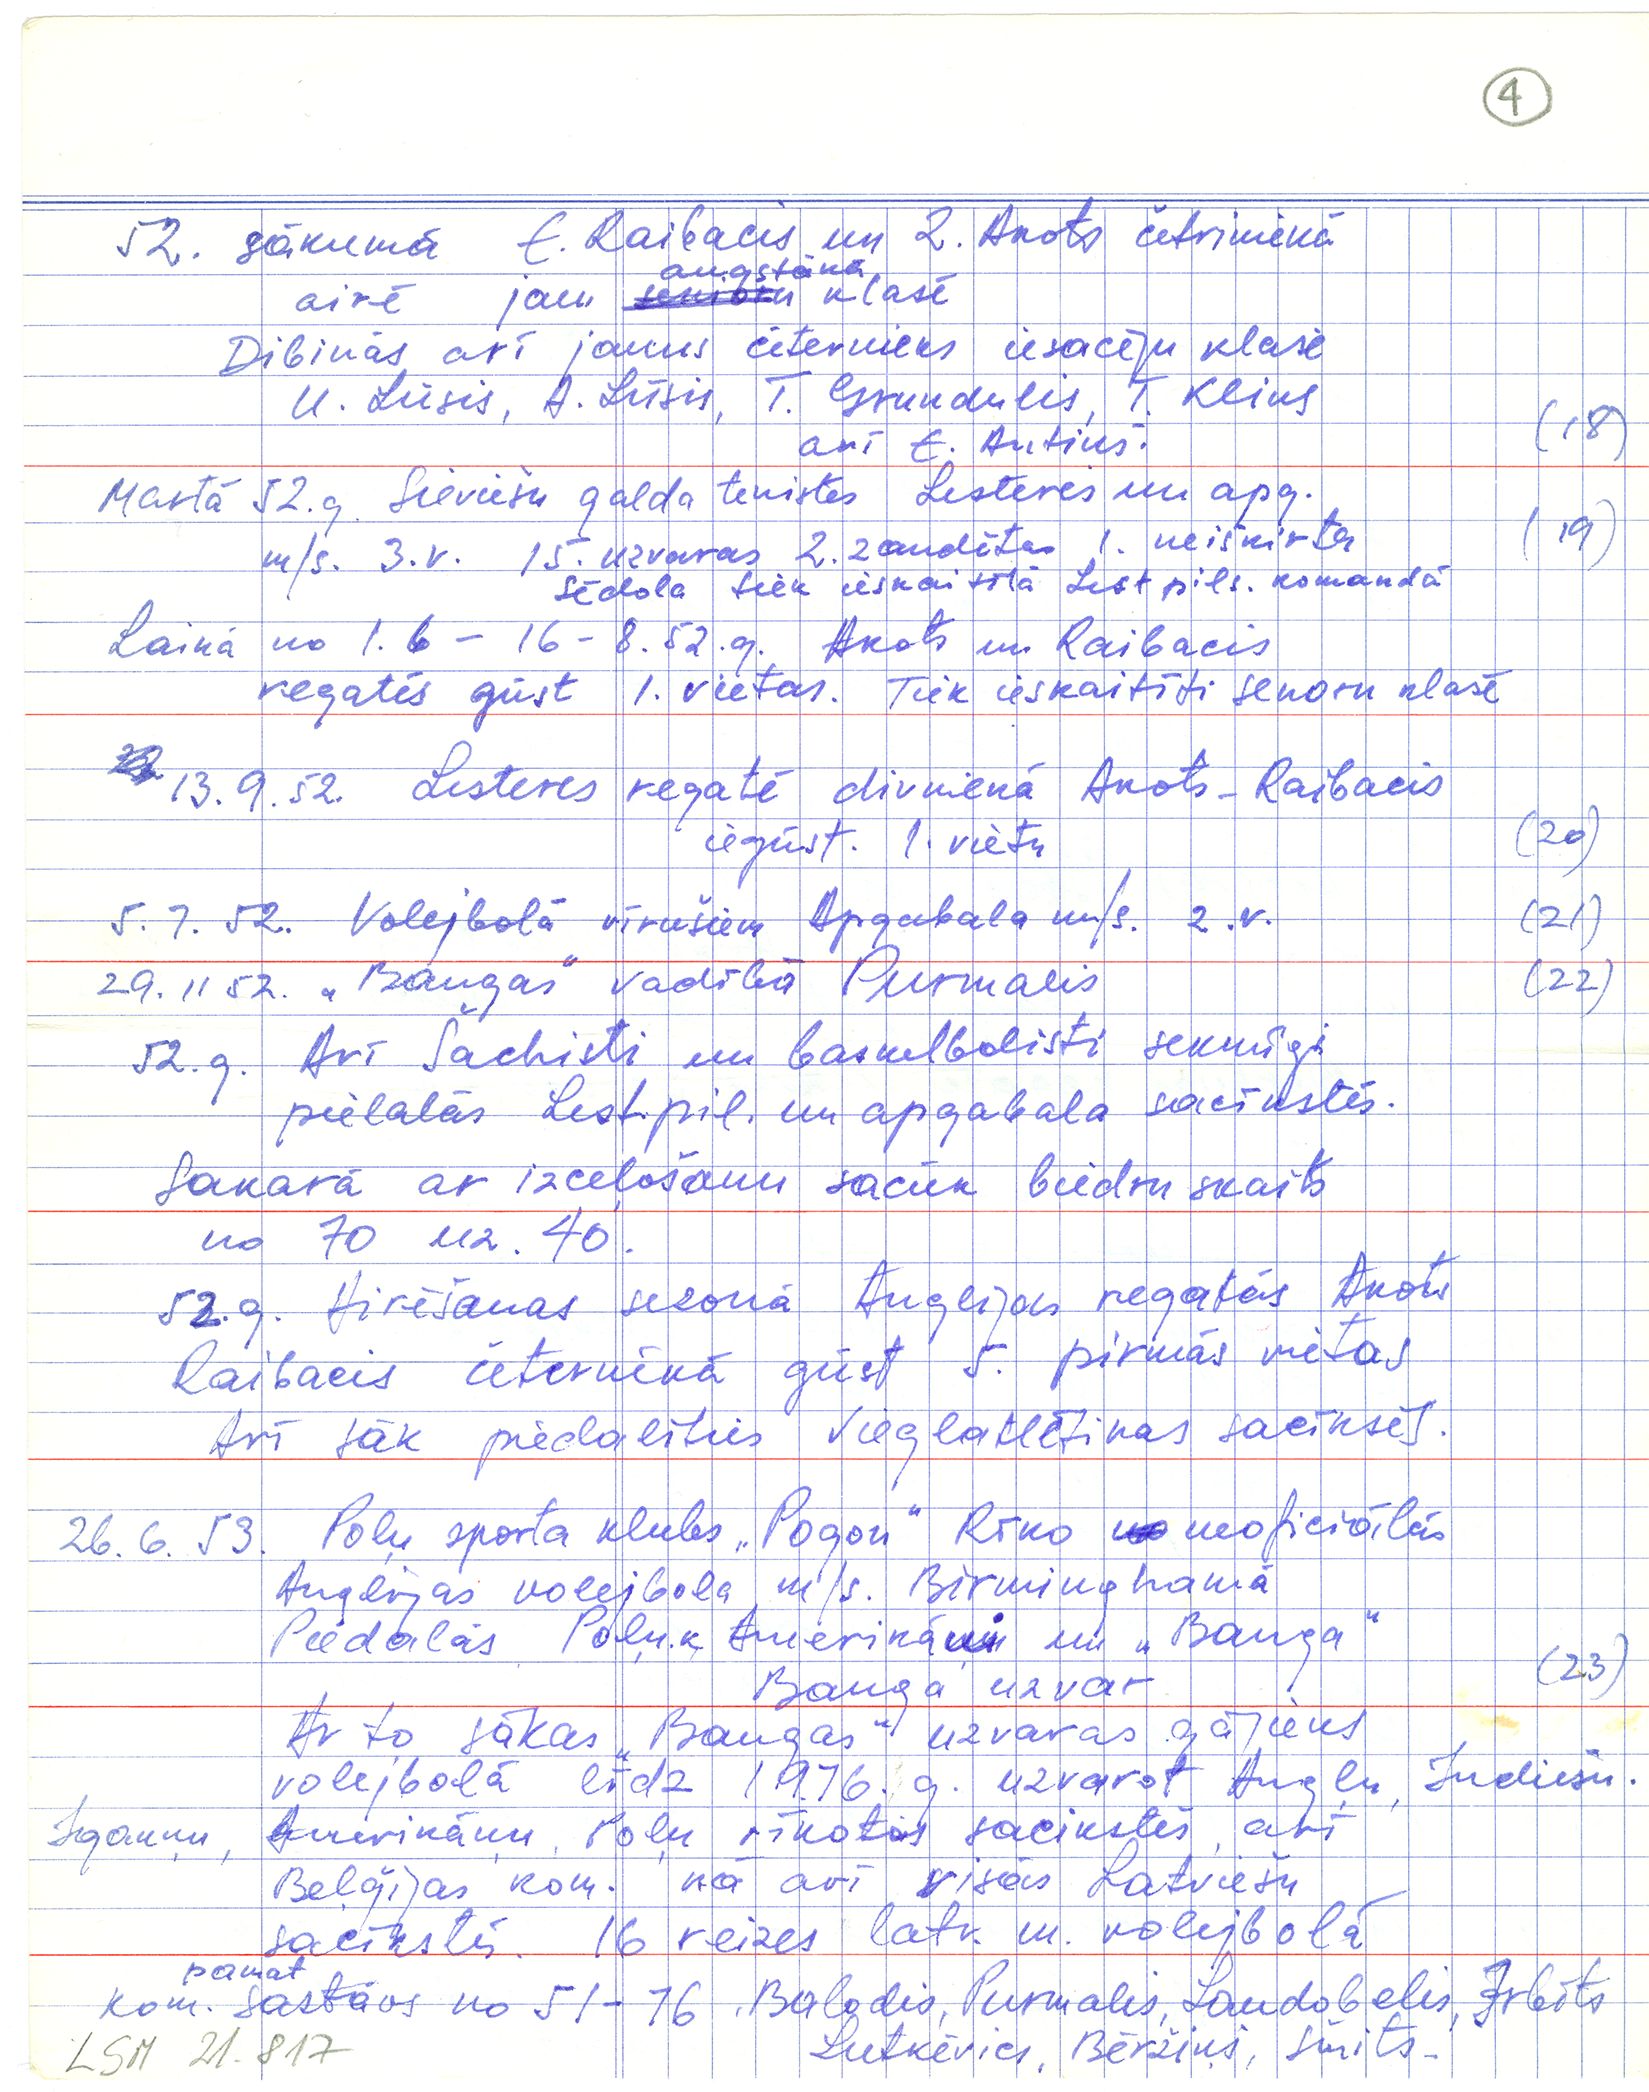 4
52. sākumā E. Raibacis un Z. Akots četriniekā
augstākā
airē jau klasē
Dibinās arī jauns četernieks iesacēju klasē
U. Lūsis, A. Lūsis, T. Grundulis, T. Klins
arī E. Antiņš. (18)
Martā 52.g. Sieviešu galda tenistes Lesteres un apg.
m/s. 3.v. 15. uzvaras 2. zaudētas 1. neišķirta (19)
Sēdola tiek ieskaitītā Lest pils. komandā
Laikā no 1.6 - 16-8.52.g. Akots un Raibacis
regatēs gūst 1. vietas. Tiek ieskaitīti senoru klasē
13.9.52. Lesteres regatē divniekā Akots-Raibacis
iegūst. 1. vietu (20)
5.7.52. Volejbolā vīrušiem Apgabala m/s. 2.v. (21)
29.11 52. „Bangas" vadībā Purmalis (22)
52.g. Arī Šachisti un basketbolisti sekmīgi
piedalās Lest.pil. un apgabala sacīkstēs.
Sakarā ar izceļošanu sarūk biedru skaits
no 70 uz. 40.
52.g. Airēšanas sezonā Anglijas regatās Akots
Raibacis četerniekā gūst 5. pirmās vietas
Arī sāk piedalīties Vieglatlētikas sacīksēs.
26.6.53. Poļu sporta klubs „Pogoń" Rīko neoficiālās
Anglijas volejbola m/s. Birminghamā
Piedalās Poļu.k Amerikāņi un „Banga"
Banga uzvar (23)
Ar to sākas „Bangas" uzvaras gājiens
volejbolā līdz 1976.g. uzvarot Angļu, Indiešu.
Igauņu, Amerikāņu, Poļu rīkotās sacīkstēs, arī
Beļģijas kom. kā arī visās Latviešu
sacīkstēs. 16 reizes latv. m. volejbolā
pamat
kom. Sastāvs no 51-76 Balodis, Purmalis, Landobelis, Irbīts
Lutkēvics, Bērziņš, Šmits-
LSM 21.817